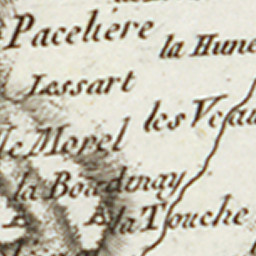 Paceliere
la Hune
Lessart
les Veau
le Morel
la Bourdinay
la Touche